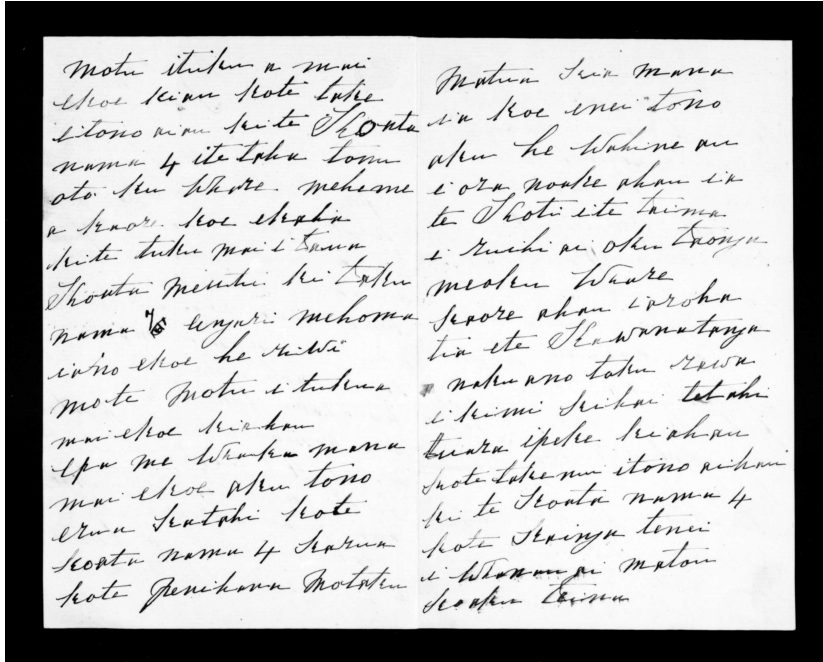 motu ituku a mai
ekoe kiau kote take
itono aiau kite Skoata
nama 4 ite taha tonu
oto ku Whare meheme
a kaore koe ekaha
kite tuku mai i taua
Skoata me utu ki taku
nama engari mehema
iaho ekoe he riiwi
mote motu i tukua
mai ekoe kiahau
epa me Whaka mana
mai ekoe aku tono
erua katahi kote
koata nama 4 karua
kote penihana motaku
matua kia mana
ia koe enei tono
aku he Wahine au
e ora noake ahau ia
te Skoti ite taima
i ruihi ai oku taonga
meoku Waare
kaore ahau iaroha
tia ete Kawanatanga
naku ano taku rawa
i kimi kihai tetahi
tuara ipeke kiahau
kote take nui itono aihau
ki te Koata nama 4
kote Kainga tenei
i Whanau ai matou
koaku teina